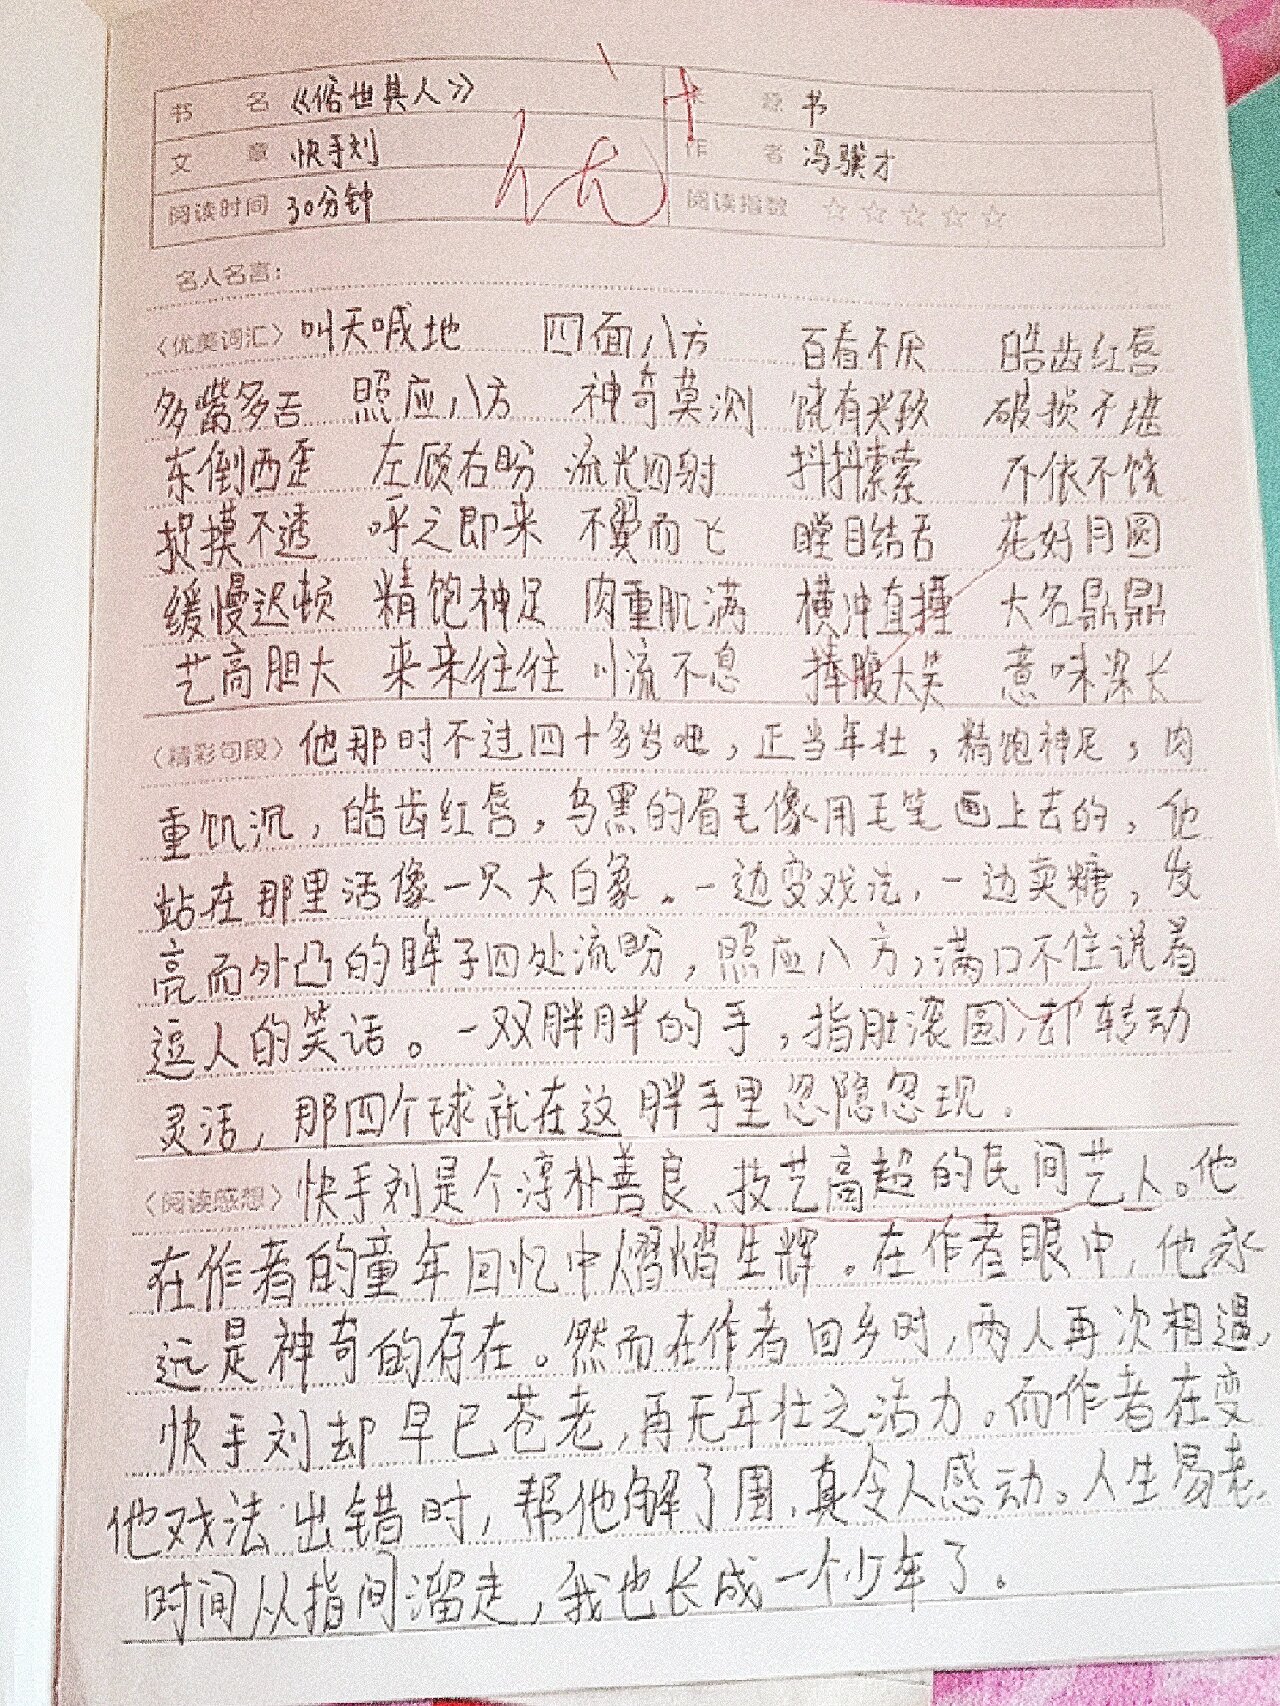 书 名 《俗世其人》 书
文 章 快手刘 作 者 冯骥才
阅读时间 30分钟 阅读指数 ☆☆☆☆☆
优+
名人名言：
〈优美词汇〉叫天喊地 四面八方 百看不厌 皓齿红唇
多嘴多舌 照应八方 神奇莫测 饶有兴致 破损不堪
东倒西歪 左顾右盼 流光四射 抖抖索索 不依不饶
捉摸不透 呼之即来 不翼而飞 瞠目结舌 花好月圆
缓慢迟顿 精饱神足 肉重肌满 横冲直撞 大名鼎鼎
艺高胆大 来来往往 川流不息 捧腹大笑 意味深长
〈精彩句段〉他那时不过四十多岁吧，正当年壮，精饱神足，肉
重肌沉，皓齿红唇，乌黑的眉毛像用毛笔画上去的，他
站在那里活像一只大白象。一边变戏法，一边卖糖，发
亮而外凸的眸子四处流盼，照应八方，满口不住说着
逗人的笑话。一双胖胖的手，指肚滚圆，却转动
灵活，那四个球就在这胖手里忽隐忽现．
〈阅读感想〉快手刘是个淳朴善良、技艺高超的民间艺人。他
在作者的童年回忆中熠熠生辉。在作者眼中，他永
远是神奇的存在。然而在作者回乡时，两人再次相遇，
快手刘却早已苍老，再无年壮之活力。而作者在变
他戏法出错时，帮他解了围，真令人感动。人生易老，
时间从指间溜走，我也长成一个少年了。